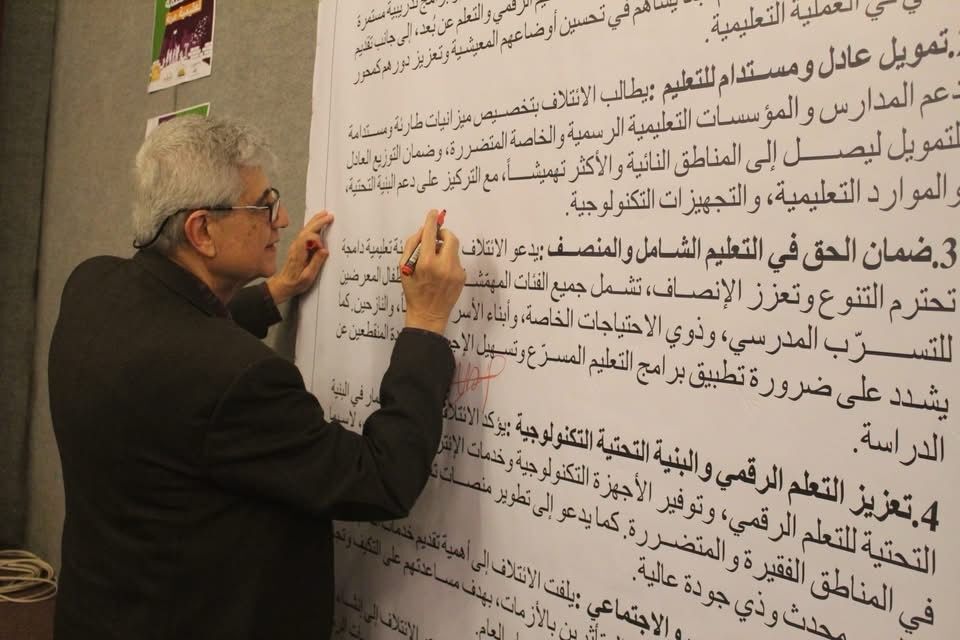 م الرقمي والتعلم عن بُعد، إلى جانب تقديم
في العملية التعليمية. يساهم في تحسين أوضاعهم المعيشية وتعزيز دورهم كمحور
.تمويل عادل ومستدام للتعليم :يطالب الائتلاف بتخصيص ميزانيات طارئة ومستدامة
دعم المدارس والمؤسسات التعليمية الرسمية والخاصة المتضررة، وضمان التوزيع العادل
للتمويل ليصل إلى المناطق النائية والأكثر تهميشاً، مع التركيز على دعم البنية التحتية،
والموارد التعليمية، والتجهيزات التكنولوجية.
3.ضمان الحق في التعليم الشامل والمنصف :يدعو الائتلاف تعليمية دامجة
تحترم التنوع وتعزز الإنصاف، تشمل جميع الفئات المعرضين
للتسرّب المدرسي، وذوي الاحتياجات الخاصة، وأبناء الأسر والنازحين. كما
يشدد على ضرورة تطبيق برامج التعليم المسرّع وتسهيل المنقطعين عن
الدراسة.
4.تعزيز التعلم الرقمي والبنية التحتية التكنولوجية :يؤكد في البنية
التحتية للتعلم الرقمي، وتوفير الأجهزة التكنولوجية وخدمات لاسيما
في المناطق الفقيرة والمتضررة. كما يدعو إلى تطوير منصات
محدث وذي جودة عالية.
والاجتماعي :يلفت الائتلاف إلى أهمية تقديم
بالأزمات، بهدف مساعدتهم على التكيف
العام. الائتلاف إلى